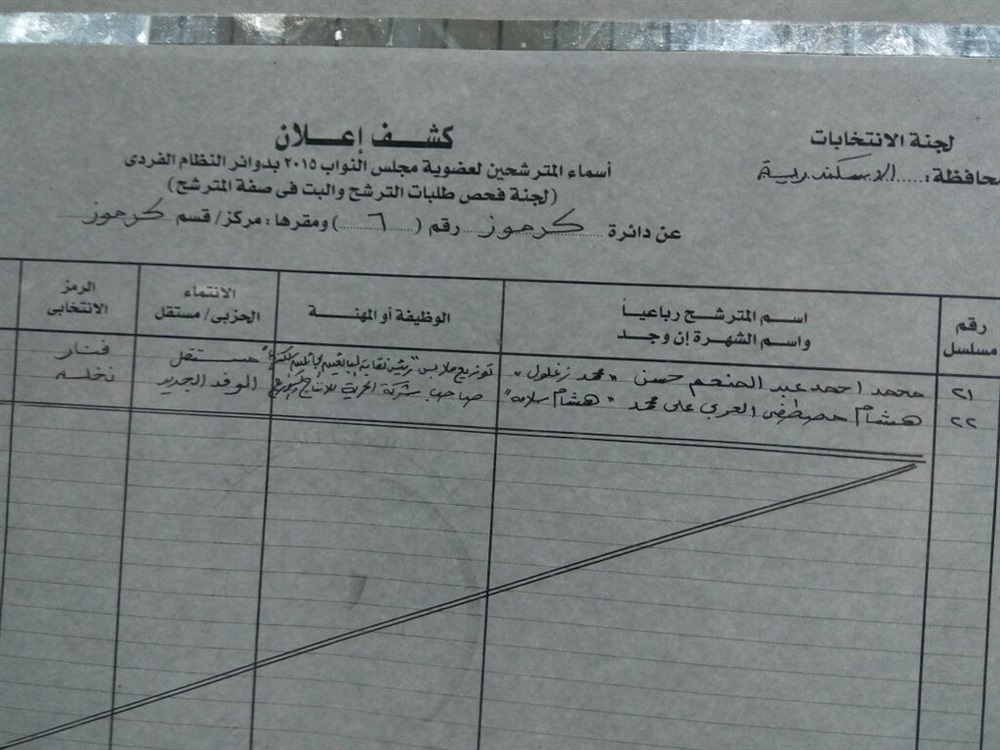 لجنة الانتخابات
محافظة: الاسكندرية
كشف إعلان
أسماء المترشحين لعضوية مجلس النواب ٢٠١٥ بدوائر النظام الفردى
(لجنة فحص طلبات الترشح والبت فى صفة المترشح)
عن دائرة كرموز رقم (٦) ومقرها: مركز/ قسم كرموز
رقم مسلسل
اسم المترشح رباعياً واسم الشهرة إن وجد
الوظيفة أو المهنة
الانتماء الحزبى/ مستقل
الرمز الانتخابى
٢١ محمد احمد عبد المنعم حسن "محمد زغلول" توزيع ملابس مستقل فنار
٢٢ هشام مصطفى العربى على محمد "هشام سلامه" صاحب شركة الحرية للانتاج الوفد الجديد نخله